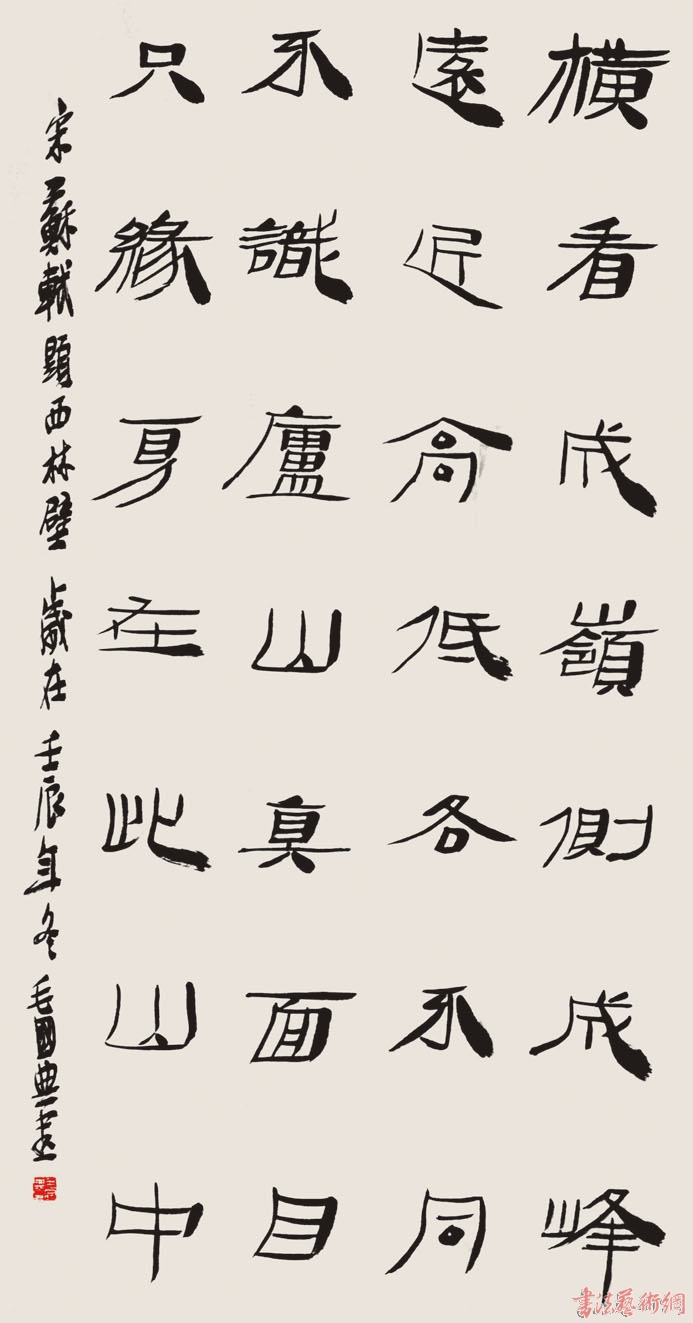 橫看成嶺側成峰
遠近高低各不同
不識廬山真面目
只緣身在此山中
宋蘇軾題西林壁 歲在壬辰年冬 毛國典書
書法藝術網